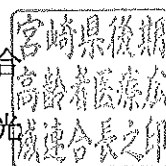 宮崎県後期
高齢者医療広
域連合長之印
合